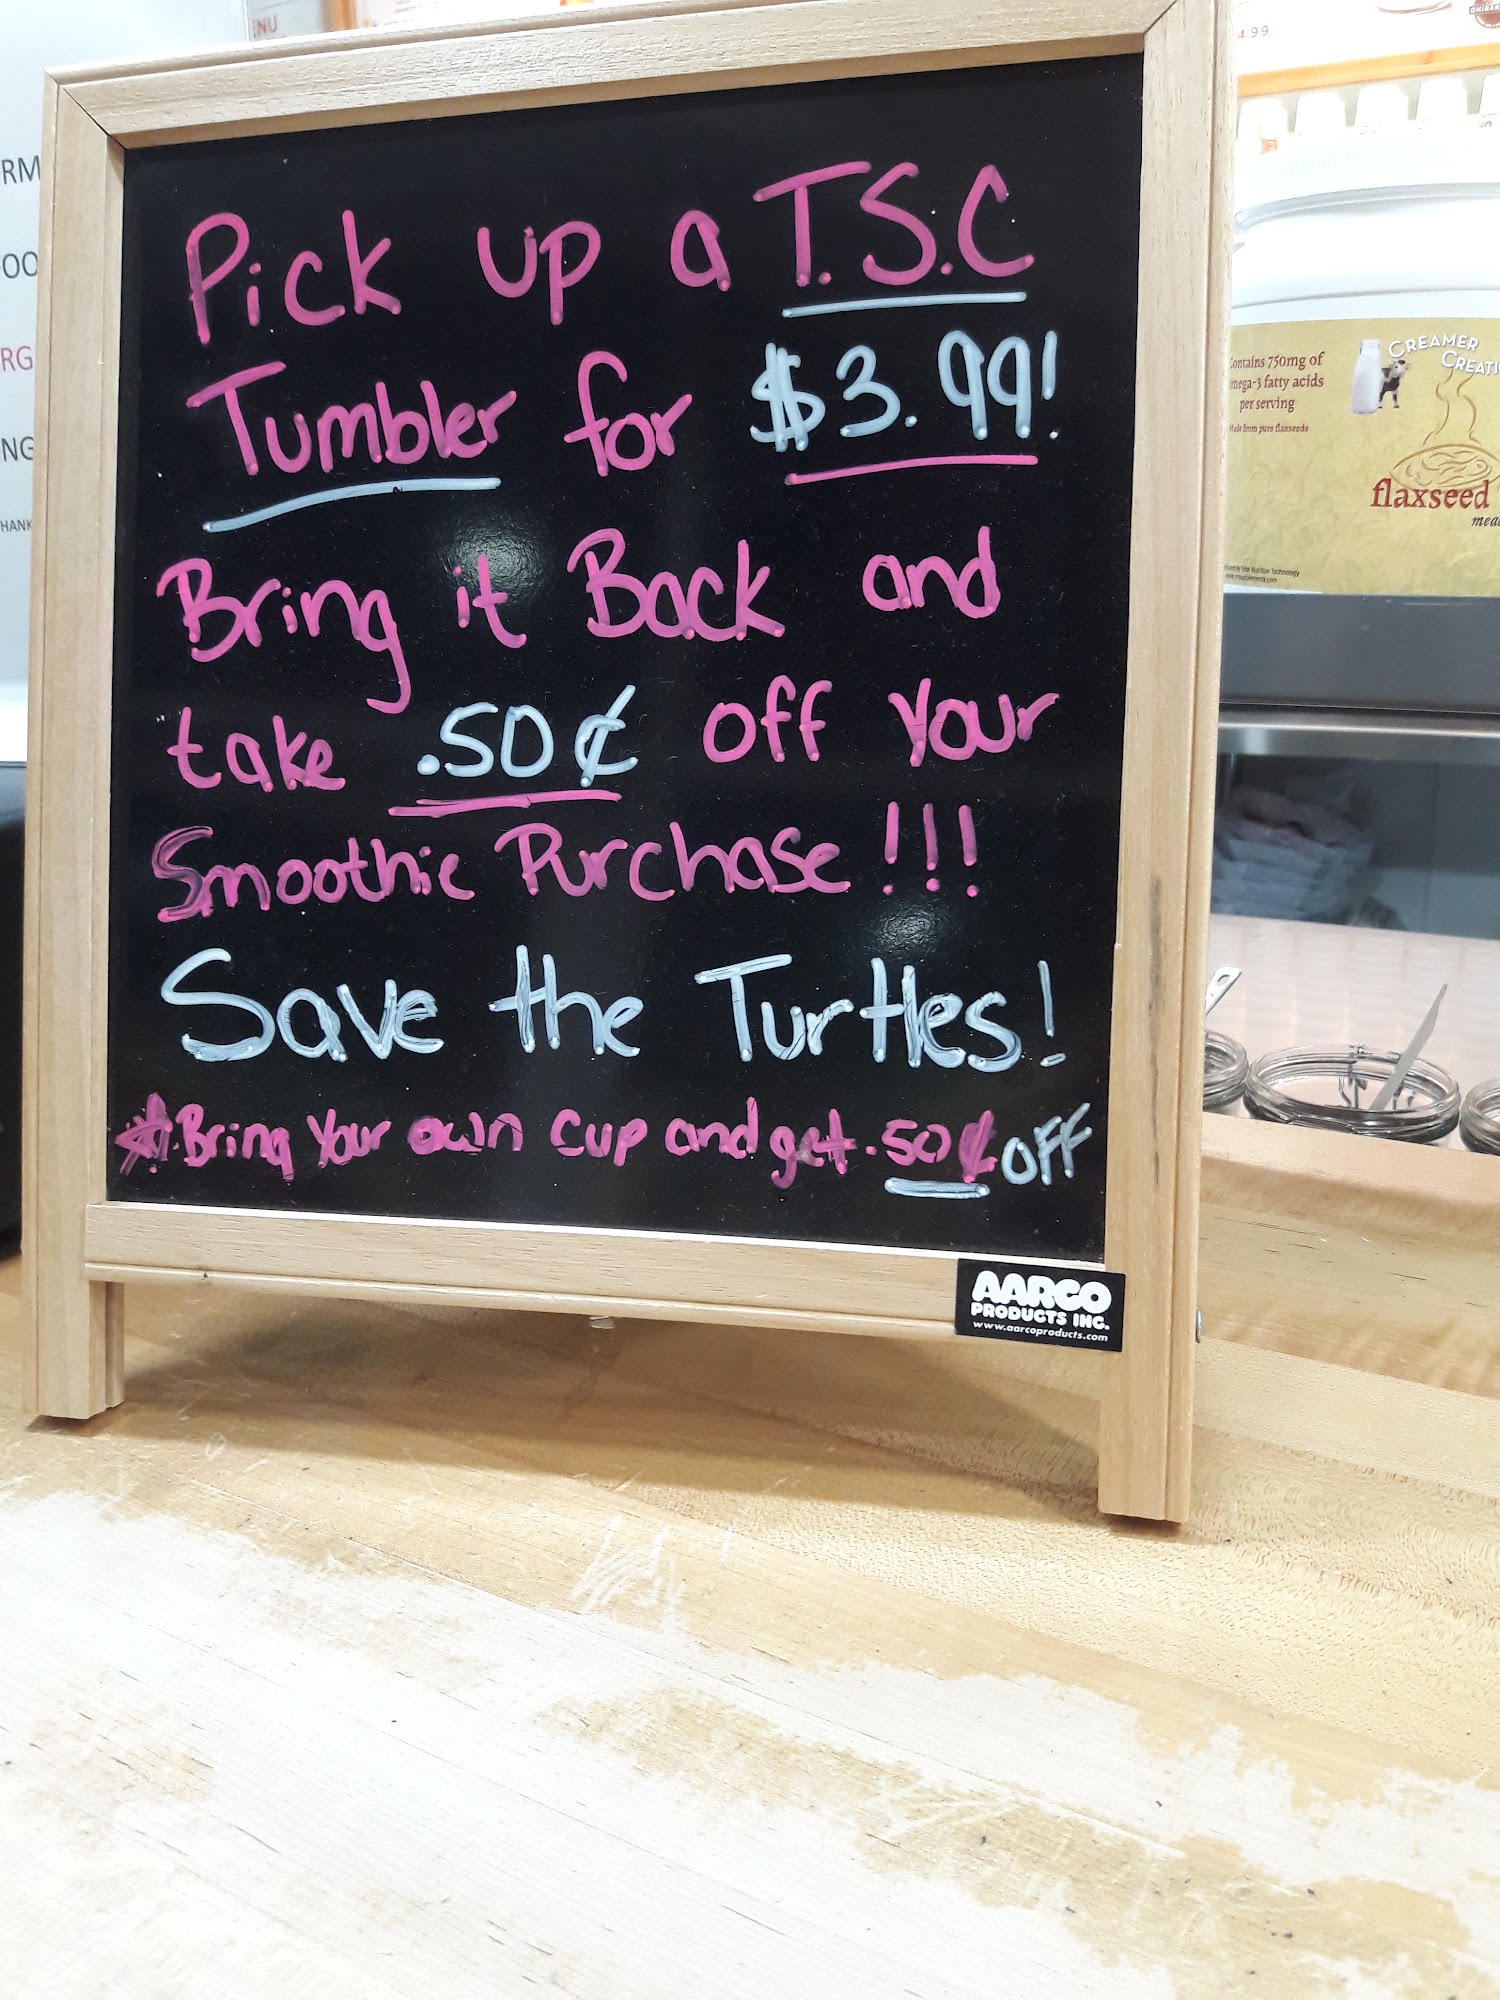 Pick up a T.S.C
Tumbler for $3.99!
Bring it Back and
take .50¢ off your
Smoothie Purchase!!!
Save the Turtles!
Bring Your own cup and get .50¢ OFF
AARCO
PRODUCTS INC.
www.aarcoproducts.com
ENU
RM
OO
RG
NG
HANK
4.99
CREAMER
CREATI
ontains 750mg of
mega-3 fatty acids
per serving
Made from pure flaxseeds
flaxseed
mea